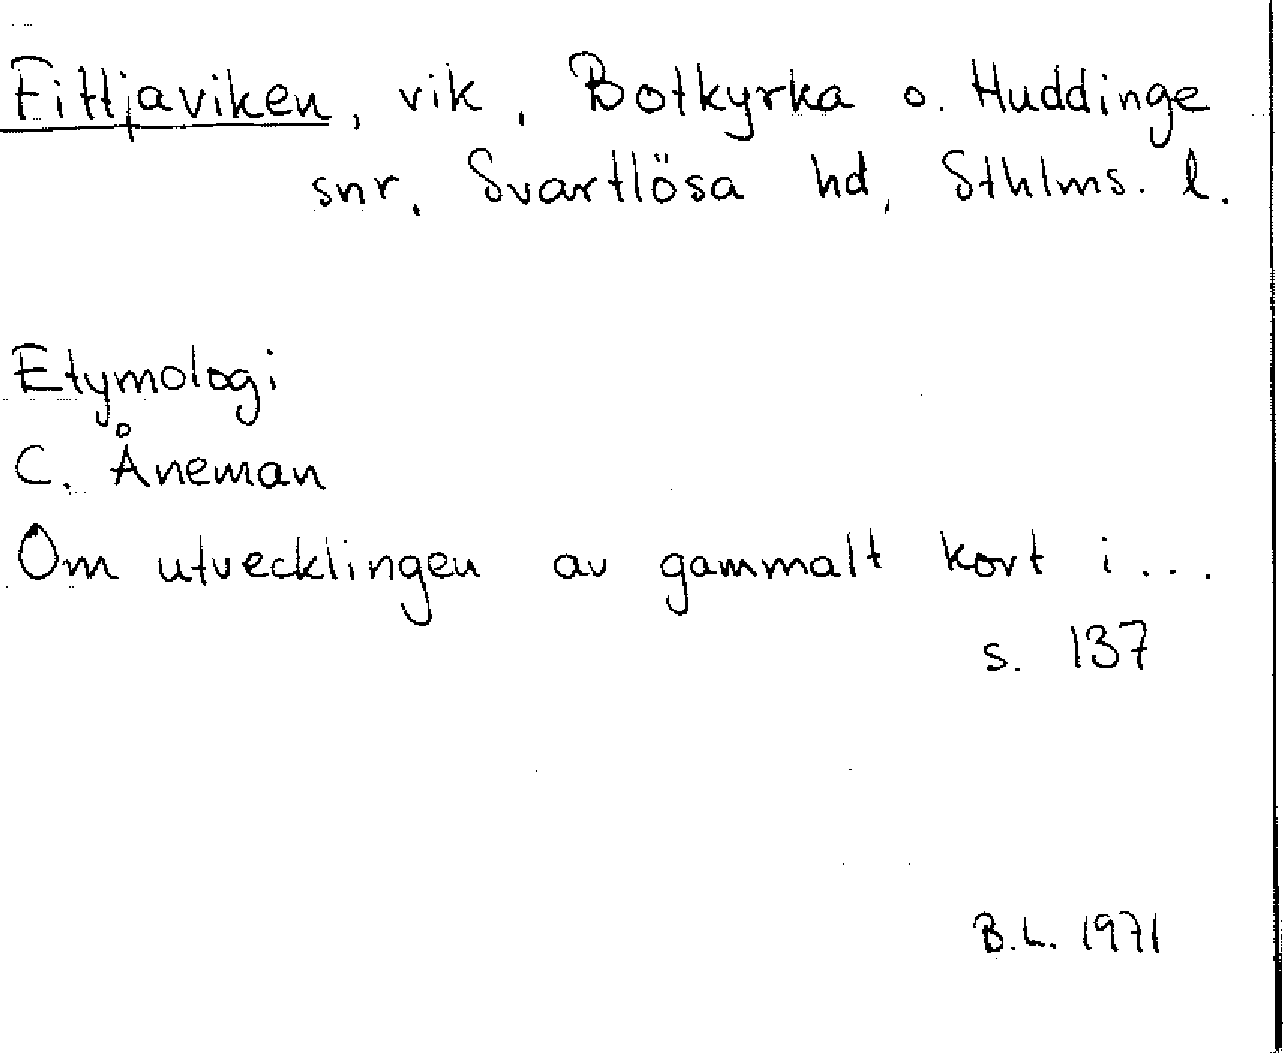 Fittjaviken, vik, Botkyrka o. Huddinge
snr, Svartlösa hd, Sthlms. l.
Etymologi
C. Åneman
Om utvecklingen av gammalt kort i...
s. 137
B.L. 1971